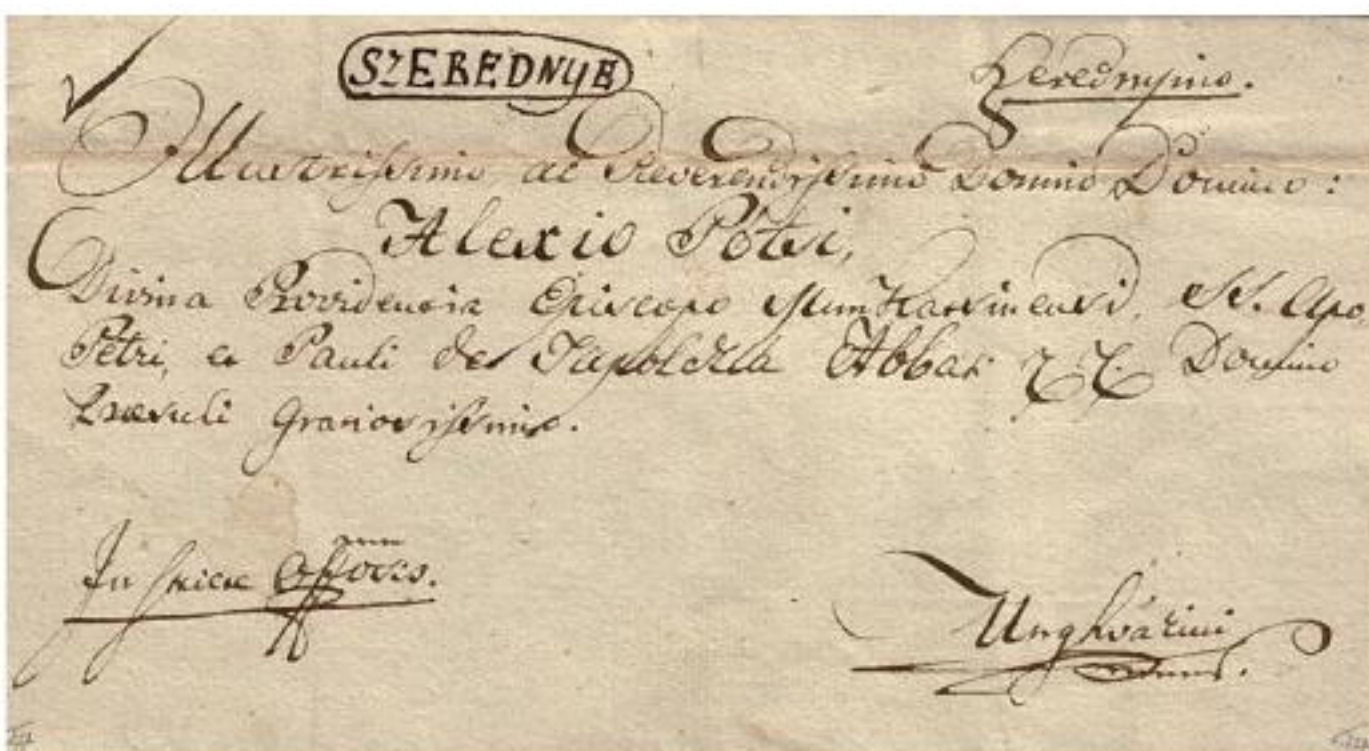 SZEREDNYE
Szerednyino.
Illustrissimo ac Reverendissimo Domino Domino:
Alexio Pótsi,
Divina Providencia Episcopo Munkacsinensi, SS. Apo.
Petri, et Pauli de Tapolcza Abbati Domino
Præsuli Graciosissimo.
In
Unghvárini